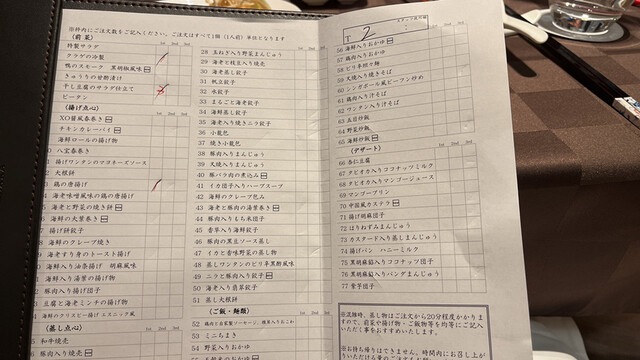 ※枠内にご注文数をご記入ください。ご注文はすべて1個(1人前)単位となります
(前菜)
1st 2nd 3rd
特製サラダ
クラゲの冷製
鴨のスモーク 黒胡椒風味
きゅうりの甘酢漬け
干し豆腐のサラダ仕立て
ピータン
(揚げ点心)
XO醤風春巻き
チキンカレーパイ
海鮮ロールの揚げ物
八宝春巻き
揚げワンタンのマヨネーズソース
大根餅
鶏の唐揚げ
海老味噌風味の鶏の唐揚げ
海老と野菜の焼き餅
海鮮の大葉巻き
揚げ餃子
海鮮のクレープ焼き
海老すり身のトースト揚げ
海鮮入り油条揚げ 胡麻風味
海鮮入り湯葉の揚げ物
豚肉入り揚げ団子
豆腐と海老ミンチの揚げ物
海鮮のクリスピー揚げ エスニック風
(蒸し点心)
1st 2nd 3rd
和牛焼売
豚肉入り焼売
28 玉ねぎ入り野菜まんじゅう
29 海老と枝豆入り焼売
30 海老蒸し餃子
31 帆立餃子
32 水餃子
33 まるごと海老餃子
34 海鮮蒸し餃子
35 海老入り焼きニラ餃子
36 小籠包
37 焼き小籠包
38 豚肉入りまんじゅう
39 叉焼入りまんじゅう
40 豚バラ肉の煮込み
41 イカ団子入りハーブスープ
42 海鮮のクレープ包み
43 海老と豚肉の湯葉巻き
44 豚肉入りもち米団子
45 香草入り海鮮餃子
46 豚肉の黒豆ソース蒸し
47 イカと香味野菜の蒸し物
48 蒸しワンタンのピリ辛黒酢風味
49 ニラと豚肉入り餃子
50 海老入り翡翠餃子
51 蒸し大根餅
(ご飯・麺類)
1st 2nd 3rd
53 ミニちまき
54 野菜入りおかゆ
T 2
1st 2nd 3rd
56 海鮮入りおかゆ
57 鶏肉入りおかゆ
58 ピリ辛担々麺
59 叉焼入り焼きそば
60 シンガポール風ビーフン炒め
61 鶏肉入り汁そば
62 ワンタン入り汁そば
63 五目炒飯
64 野菜炒飯
65 海鮮炒飯
(デザート)
1st 2nd 3rd
66 杏仁豆腐
67 タピオカ入りココナッツミルク
68 タピオカ入りマンゴージュース
69 マンゴープリン
70 中国風カステラ
71 揚げ胡麻団子
72 はりねずみまんじゅう
73 カスタード入り蒸しまんじゅう
74 揚げパン ハニーミルク
75 黒胡麻餡入りココナッツ団子
76 黒胡麻餡入りパンダまんじゅう
77 紫芋団子
※混雑時、蒸し物はご注文から20分程度かかりま
すので、前菜や揚げ物・ご飯物等を均等にご記入い
ただく事をおすすめいたします。
※お持ち帰りはできません。時間内にお召し上が